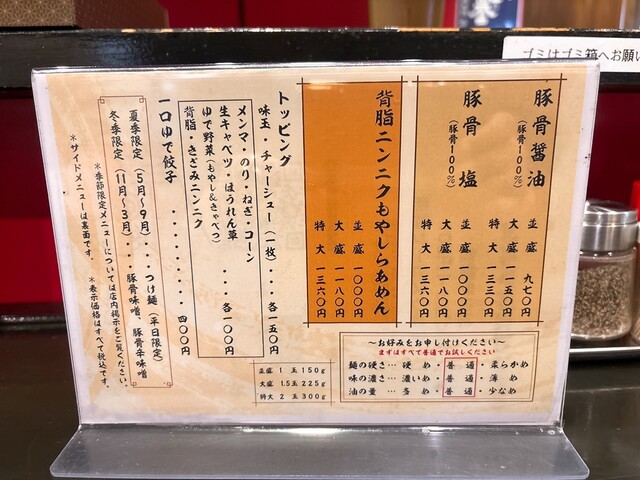 ゴミはゴミ箱へお願い
豚骨醤油
(豚骨100%)
並盛 九七〇円
大盛 一一五〇円
特大 一三三〇円
豚骨 塩
(豚骨100%)
並盛 一〇〇〇円
大盛 一一八〇円
特大 一三六〇円
背脂ニンニクもやしらあめん
並盛 一〇〇〇円
大盛 一一八〇円
特大 一三六〇円
トッピング
味玉・チャーシュー(一枚)・・各一五〇円
メンマ・のり・ねぎ・コーン
生キャベツ・ほうれん草
ゆで野菜(もやし&きゃべつ)
背脂・きざみニンニク
・・各一〇〇円
一口ゆで餃子・・・・・・・・四〇〇円
夏季限定(5月~9月)・・・つけ麺(平日限定)
冬季限定(11月~3月)・・・豚骨味噌、豚骨辛味噌
*季節限定メニューについては店内掲示をご覧ください。
*サイドメニューは裏面です。
*表示価格はすべて税込です。
並盛 1 玉 150g
大盛 1.5玉 225g
特大 2 玉 300g
~お好みをお申し付けください~
まずはすべて普通でお試しください
麺の硬さ…硬 め・普 通・柔らかめ
味の濃さ…濃いめ・普 通・薄 め
油の量…多 め・普 通・少なめ